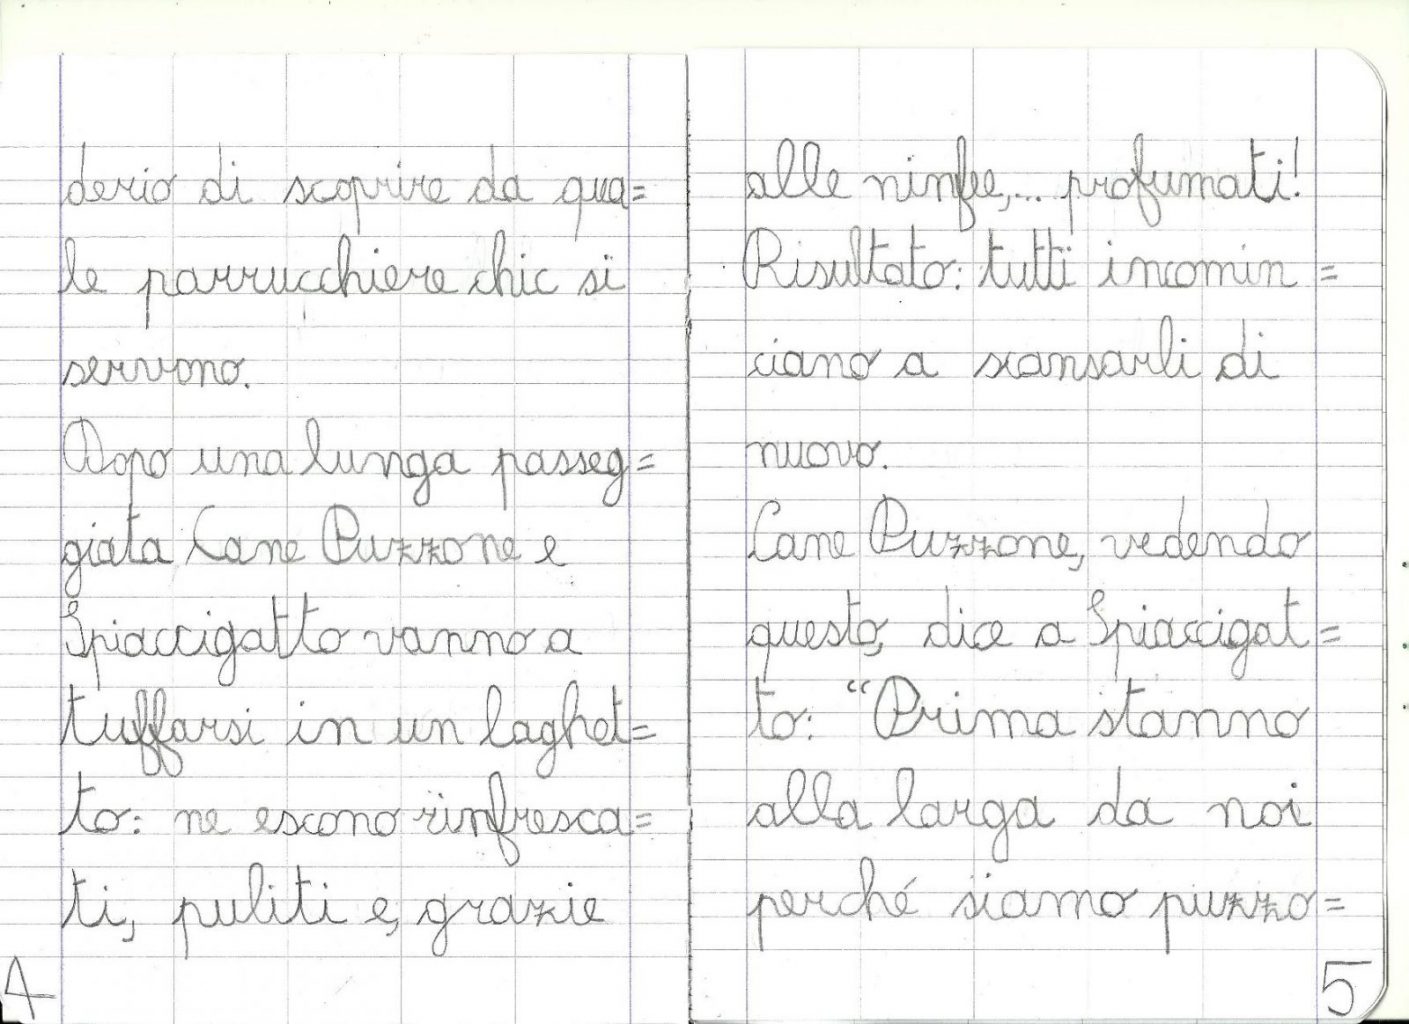 derio di scoprire da qua=
le parrucchiere chic si
servono.
Dopo una lunga passeg=
giata Cane Puzzone e
Spiaccigatto vanno a
tuffarsi in un laghet=
to: ne escono rinfresca=
ti, puliti e, grazie
4
alle ninfee,... profumati!
Risultato: tutti incomin=
ciano a scansarli di
nuovo.
Cane Puzzone, vedendo
questo, dice a Spiaccigat=
to: “Prima stanno
alla larga da noi
perché siamo puzzo=
5